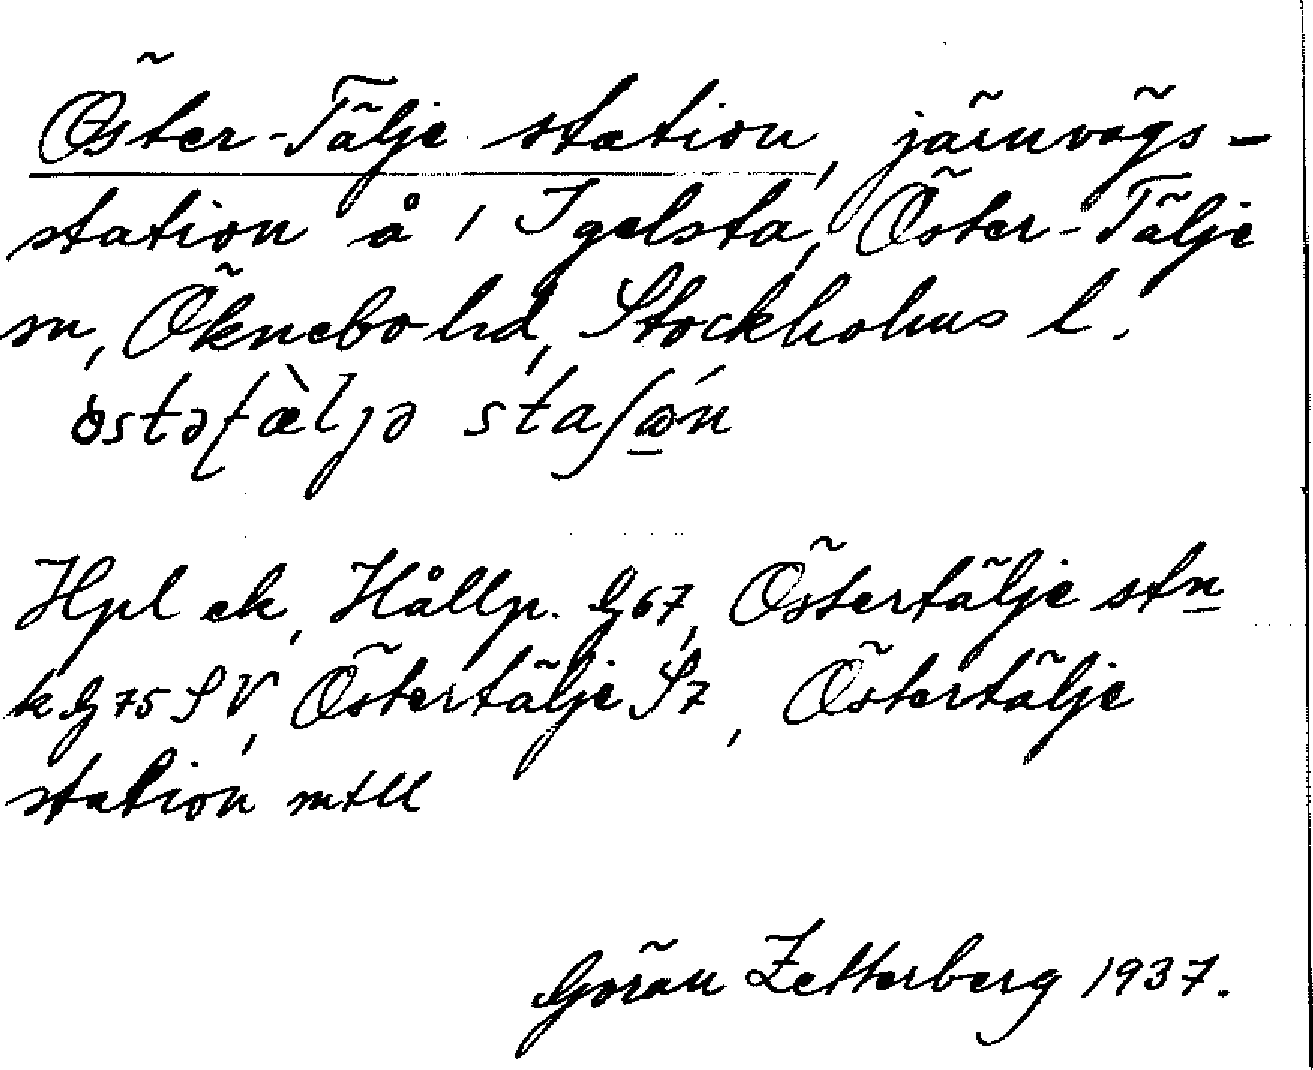 Öster-Tälje station, järnvägs-
station å 1 Igelsta, Öster-Tälje
sn, Öknebo hd, Stockholms l.
östəʈæ̀ljə staʃón
Hpl ek, Hållp. G67, Östertälje stn
k G 75 SV, Östertälje S7, Östertälje
station mtll
Göran Zetterberg 1937.